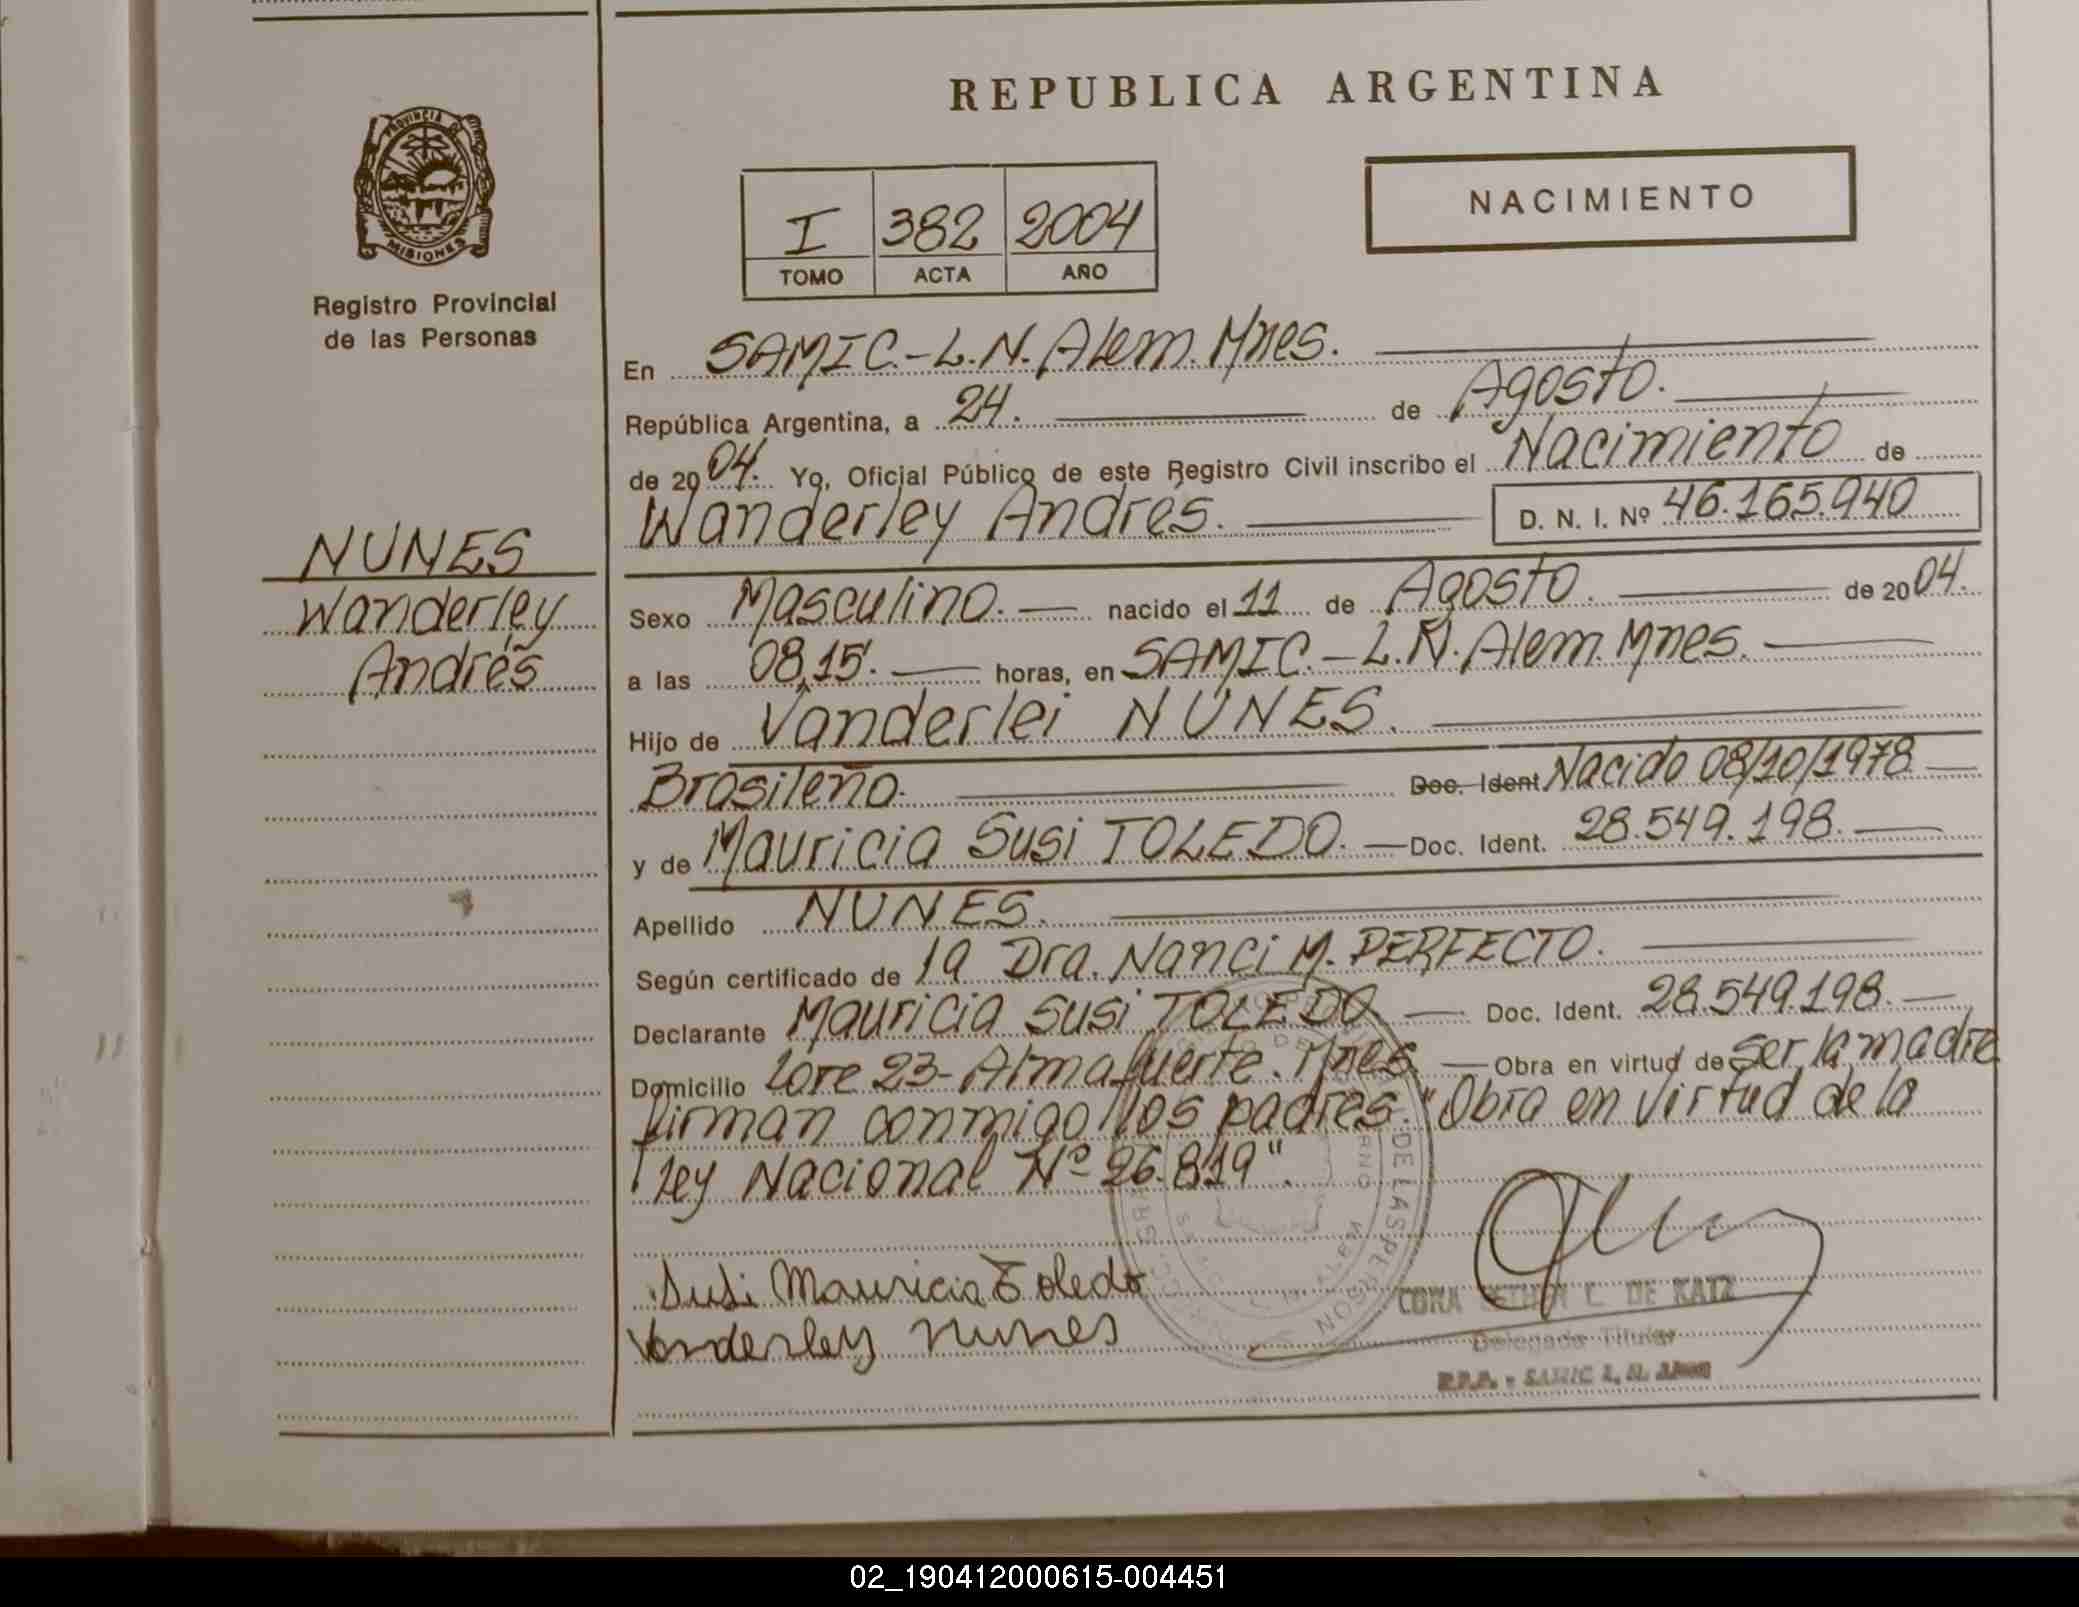 REPUBLICA ARGENTINA
PROVINCIA DE
MISIONES
Registro Provincial
de las Personas
I 382 2004
TOMO ACTA AÑO
NACIMIENTO
En SAMIC.-L.N. Alem. Mnes.
República Argentina, a 24. de Agosto.
de 2004. Yo, Oficial Público de este Registro Civil inscribo el Nacimiento de
Wanderley Andrés. D. N. I. Nº 46.165.940
NUNES
Wanderley
Andrés
Sexo Masculino. nacido el 11 de Agosto. de 2004.
a las 08,15. horas, en SAMIC.-L.N. Alem. Mnes.
Hijo de Vanderlei NUNES.
Brasileño. Doc. Ident. Nacido 08/10/1978
y de Mauricia Susi TOLEDO. Doc. Ident. 28.549.198.
Apellido NUNES.
Según certificado de la Dra. Nanci M. PERFECTO.
Declarante Mauricia Susi TOLEDO Doc. Ident. 28.549.198.
Domicilio Lote 23-Almafuerte. Mnes. Obra en virtud de Ser la madre
firman conmigo los padres. "Obra en virtud de la
Ley Nacional Nº 26.819".
Susi Mauricia Toledo
Vanderley Nunes
DE LAS PERSON
DE KATZ
Delegada Titular
R.P.P. - SAMIC L. N. ALEM
02_190412000615-004451